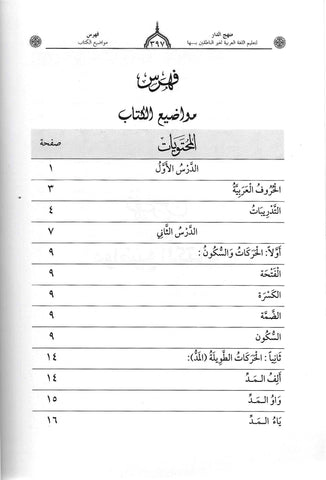 منهج الدار
لتعليم اللغة العربية لغير الناطقين بـها
٣٩٧
فهرس
مواضيع الكتاب
فهرس
مواضيع الكتاب
المحتويات صفحة
الدَّرْسُ الأَوَّلُ ١
الحُرُوفُ العَرَبِيَّةُ ٣
التَّدْرِيبَاتُ ٤
الدَّرْسُ الثَّانِي ٧
أَوَّلاً: الحَرَكَاتُ وَالسُّكُونُ: ٩
الْفَتْحَة ٩
الكَسْرَة ٩
الضَّمَّة ٩
السُّكُون ٩
ثَانِياً: الحَرَكَاتُ الطَّوِيلَةُ (المَدُّ): ١٤
أَلِفُ الـمَـدِّ ١٤
وَاوُ الـمَـدِّ ١٥
يَاءُ الـمَـدِّ ١٦